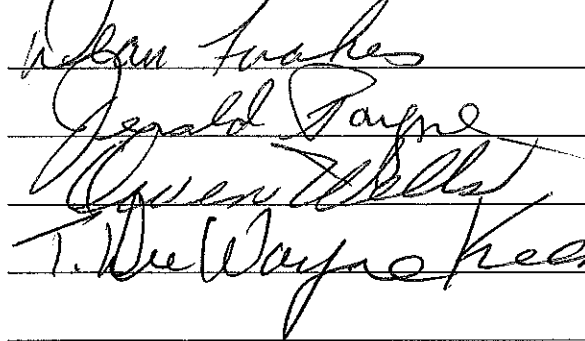 Dean Foakes
Jerald Payne
Owen Wells
T. DeWayne Kees